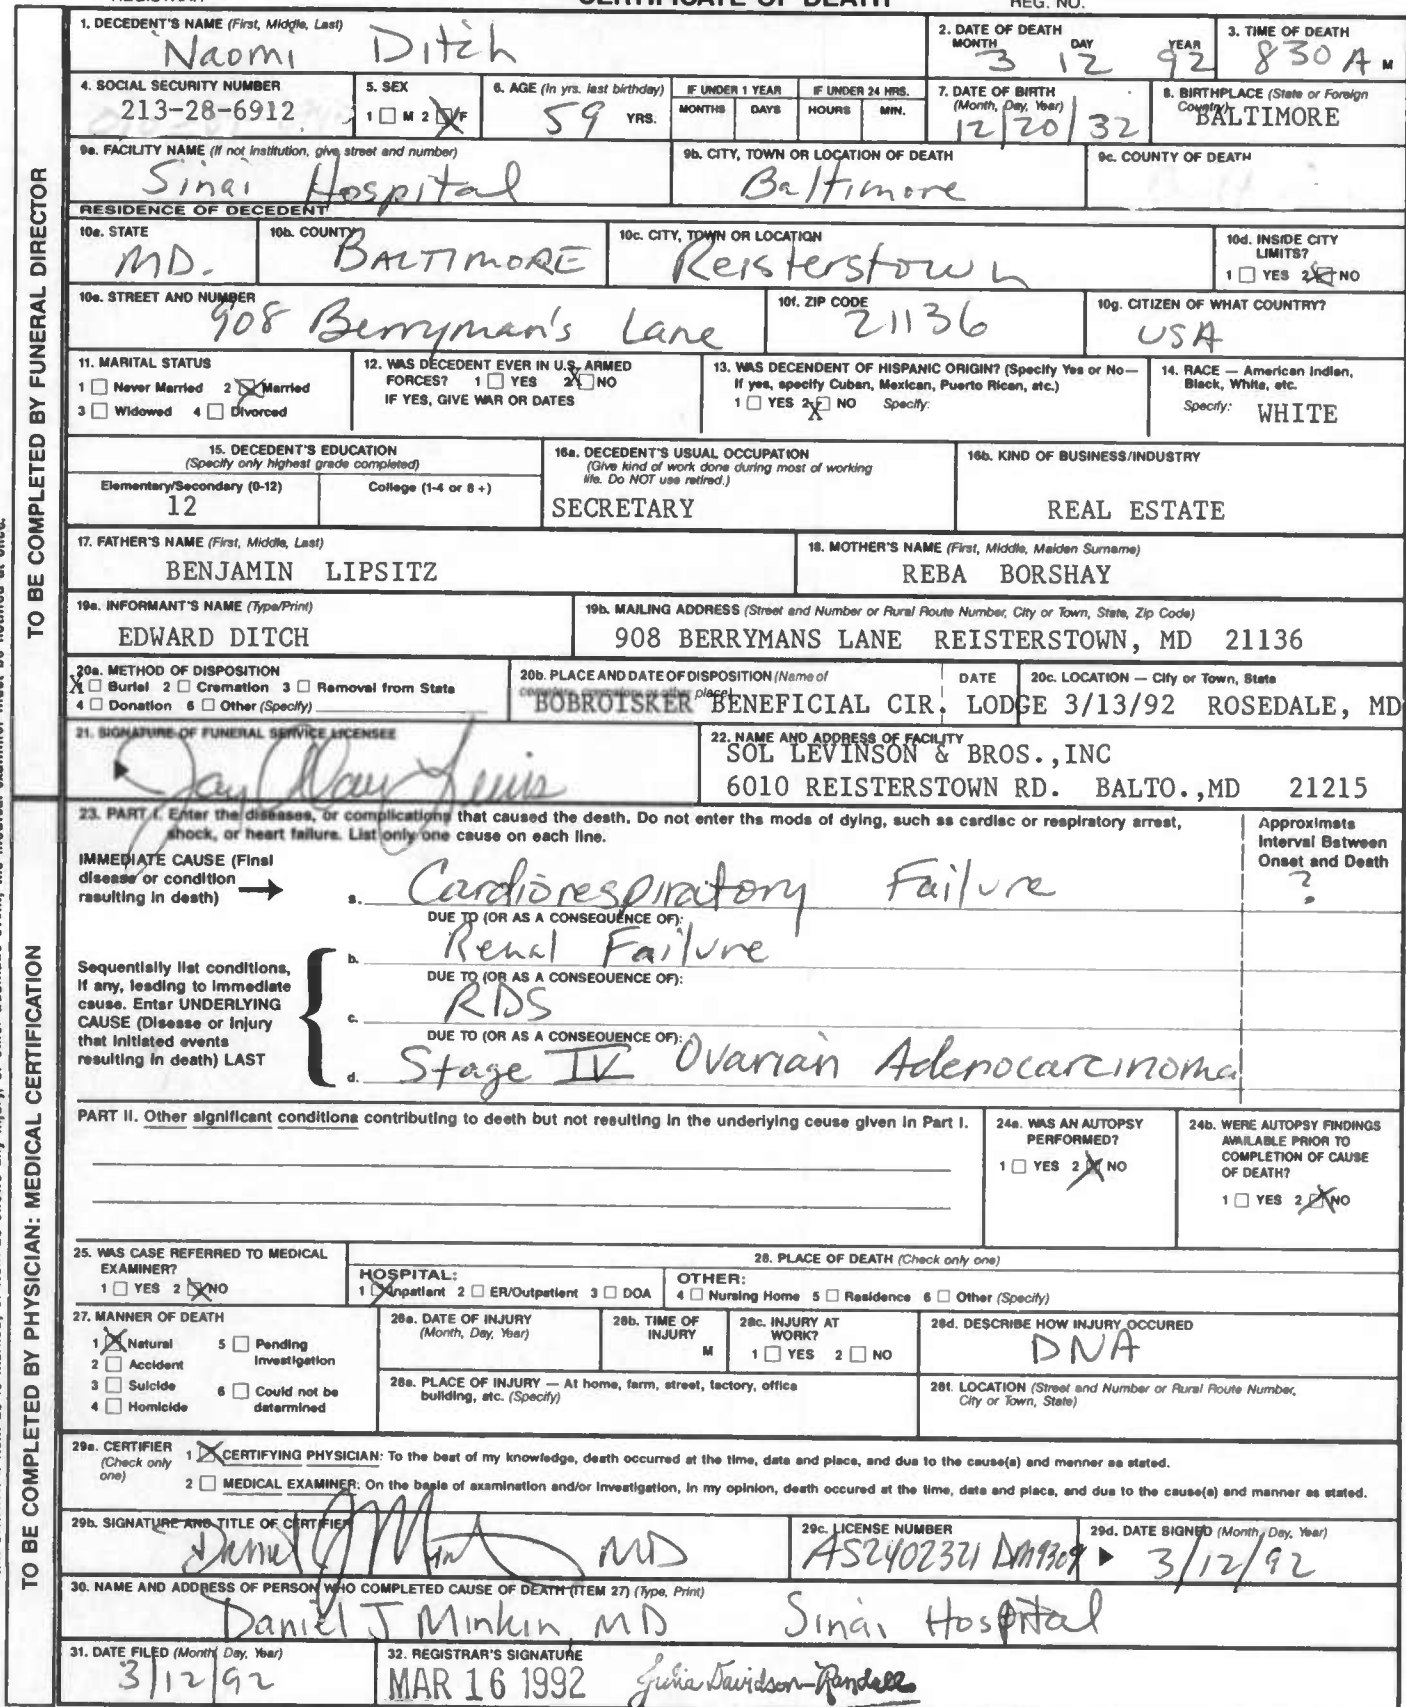 CERTIFICATE OF DEATH
REG. NO.
1. DECEDENT'S NAME (First, Middle, Last)
Naomi Ditch
2. DATE OF DEATH
MONTH DAY YEAR
3 12 92
3. TIME OF DEATH
830 A M
4. SOCIAL SECURITY NUMBER
213-28-6912
5. SEX
1 M 2 F
6. AGE (In yrs. last birthday)
59 YRS.
IF UNDER 1 YEAR
MONTHS DAYS
IF UNDER 24 HRS.
HOURS MIN.
7. DATE OF BIRTH
(Month, Day, Year)
12/20/32
8. BIRTHPLACE (State or Foreign Country)
BALTIMORE
9a. FACILITY NAME (If not institution, give street and number)
Sinai Hospital
9b. CITY, TOWN OR LOCATION OF DEATH
Baltimore
9c. COUNTY OF DEATH
RESIDENCE OF DECEDENT
10a. STATE
MD.
10b. COUNTY
BALTIMORE
10c. CITY, TOWN OR LOCATION
Reisterstown
10d. INSIDE CITY LIMITS?
1 YES 2 X NO
10e. STREET AND NUMBER
908 Berryman's Lane
10f. ZIP CODE
21136
10g. CITIZEN OF WHAT COUNTRY?
USA
11. MARITAL STATUS
1 Never Married 2 X Married
3 Widowed 4 Divorced
12. WAS DECEDENT EVER IN U.S. ARMED
FORCES? 1 YES 2 X NO
IF YES, GIVE WAR OR DATES
13. WAS DECENDENT OF HISPANIC ORIGIN? (Specify Yes or No—
If yes, specify Cuban, Mexican, Puerto Rican, etc.)
1 YES 2 X NO Specify:
14. RACE — American Indian,
Black, White, etc.
Specify: WHITE
15. DECEDENT'S EDUCATION
(Specify only highest grade completed)
Elementary/Secondary (0-12)
12
College (1-4 or 5+)
16a. DECEDENT'S USUAL OCCUPATION
(Give kind of work done during most of working
life. Do NOT use retired.)
SECRETARY
16b. KIND OF BUSINESS/INDUSTRY
REAL ESTATE
17. FATHER'S NAME (First, Middle, Last)
BENJAMIN LIPSITZ
18. MOTHER'S NAME (First, Middle, Maiden Surname)
REBA BORSHAY
19a. INFORMANT'S NAME (Type/Print)
EDWARD DITCH
19b. MAILING ADDRESS (Street and Number or Rural Route Number, City or Town, State, Zip Code)
908 BERRYMANS LANE REISTERSTOWN, MD 21136
20a. METHOD OF DISPOSITION
X 1 Burial 2 Cremation 3 Removal from State
4 Donation 5 Other (Specify)
20b. PLACE AND DATE OF DISPOSITION (Name of
cemetery, crematory or other place)
DATE
20c. LOCATION — City or Town, State
BOBROISKER BENEFICIAL CIR. LODGE 3/13/92 ROSEDALE, MD
21. SIGNATURE OF FUNERAL SERVICE LICENSEE
22. NAME AND ADDRESS OF FACILITY
SOL LEVINSON & BROS.,INC
6010 REISTERSTOWN RD. BALTO.,MD 21215
23. PART I. Enter the diseases, or complications that caused the death. Do not enter the mode of dying, such as cardiac or respiratory arrest,
shock, or heart failure. List only one cause on each line.
Approximate
Interval Between
Onset and Death
?
IMMEDIATE CAUSE (Final
disease or condition
resulting in death)
a. Cardiorespiratory Failure
DUE TO (OR AS A CONSEQUENCE OF):
b. Renal Failure
DUE TO (OR AS A CONSEQUENCE OF):
c. RDS
DUE TO (OR AS A CONSEQUENCE OF):
d. Stage IV Ovarian Adenocarcinoma
Sequentially list conditions,
if any, leading to immediate
cause. Enter UNDERLYING
CAUSE (Disease or injury
that initiated events
resulting in death) LAST
PART II. Other significant conditions contributing to death but not resulting in the underlying cause given in Part I.
24a. WAS AN AUTOPSY
PERFORMED?
1 YES 2 X NO
24b. WERE AUTOPSY FINDINGS
AVAILABLE PRIOR TO
COMPLETION OF CAUSE
OF DEATH?
1 YES 2 X NO
25. WAS CASE REFERRED TO MEDICAL
EXAMINER?
1 YES 2 X NO
26. PLACE OF DEATH (Check only one)
HOSPITAL:
1 X Inpatient 2 ER/Outpatient 3 DOA
OTHER:
4 Nursing Home 5 Residence 6 Other (Specify)
27. MANNER OF DEATH
1 X Natural 5 Pending
2 Accident Investigation
3 Suicide 6 Could not be
4 Homicide determined
28a. DATE OF INJURY
(Month, Day, Year)
28b. TIME OF
INJURY
M
28c. INJURY AT
WORK?
1 YES 2 NO
28d. DESCRIBE HOW INJURY OCCURED
DNA
28e. PLACE OF INJURY — At home, farm, street, factory, office
building, etc. (Specify)
28f. LOCATION (Street and Number or Rural Route Number,
City or Town, State)
29a. CERTIFIER
(Check only
one)
1 X CERTIFYING PHYSICIAN: To the best of my knowledge, death occurred at the time, date and place, and due to the cause(s) and manner as stated.
2 MEDICAL EXAMINER: On the basis of examination and/or investigation, in my opinion, death occured at the time, date and place, and due to the cause(s) and manner as stated.
29b. SIGNATURE AND TITLE OF CERTIFIER
Daniel J Mink MD
29c. LICENSE NUMBER
AS2402321 DM9309
29d. DATE SIGNED (Month, Day, Year)
3/12/92
30. NAME AND ADDRESS OF PERSON WHO COMPLETED CAUSE OF DEATH (ITEM 27) (Type, Print)
Daniel J Minkin, MD Sinai Hospital
31. DATE FILED (Month, Day, Year)
3/12/92
32. REGISTRAR'S SIGNATURE
MAR 16 1992 Julia Davidson-Randall
TO BE COMPLETED BY FUNERAL DIRECTOR
TO BE COMPLETED BY PHYSICIAN: MEDICAL CERTIFICATION